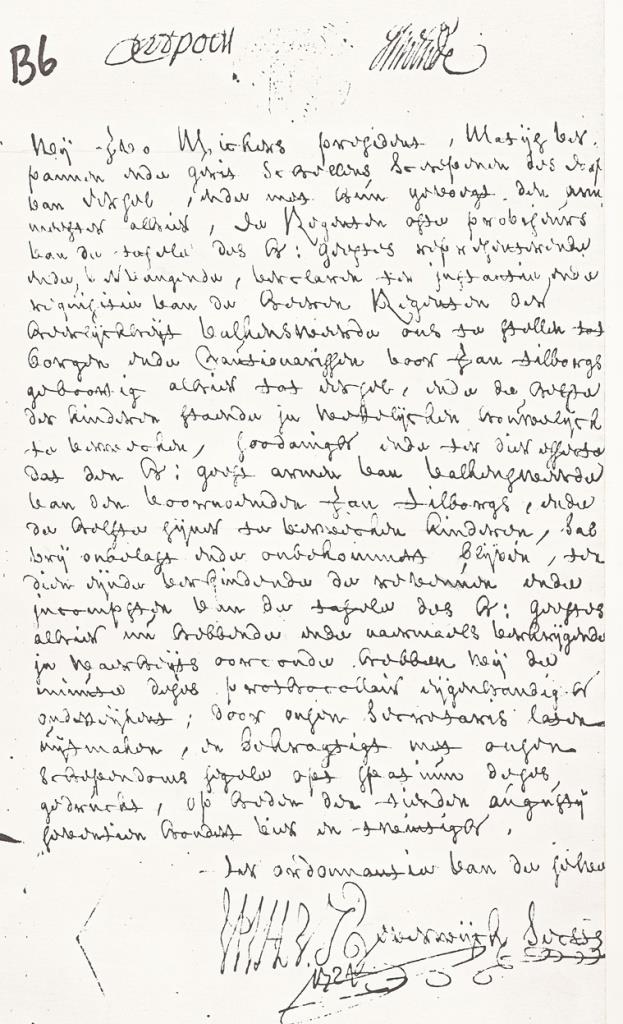 B6
Wij Jno Wichers president, Matijs ver-
pannen ende gerit Schellens Schepenen des dorps
van Eersel, ende met hun gevoegt den arm
meester alhier, de Regenten ofte proviseurs
van de tafele des H: geestes representerende
ende vervangende, verclaren ter instantie ende
requisitie van de heeren Regenten der
heerlijckheijt valkensweerde ons te stellen tot
borgen ende Cautionarissen voor Jan tilborgs
geboortig alhier tot eersel, ende de helfte
der kinderen staende in wettelijcken houwelijck
te verwecken, soodaniger ende ter dier effecte
dat den H: geest armen van valkensweerde
van den voornoemden Jan tilborgs, ende
de helfte sijner te verwecken kinderen, sal
vrij onbelast ende onbekommert blijven, ten
dien eijnde verbindende de revennuen ende
incompsten van de tafele des H: geestes
alhier nu hebbende ende naermaels verkrijgende
in waerheijts oorconde hebben wij de
minute deses prothocollair eijgenhandig
onderteijkent; door onsen Secretaris laten
uijtmaken, en bekragtigt met onsen
Schependoms segele opt spatium deses
gedruckt, op heden den tienden augustij
seventien hondert vier en twintigh.
ter ordonnantie van de selve
Secrts
1724